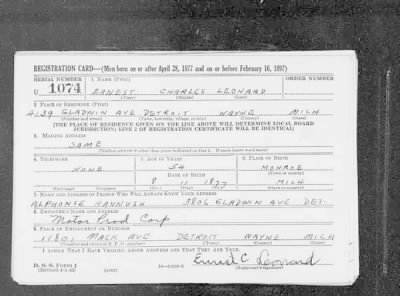 REGISTRATION CARD—(Men born on or after April 28, 1877 and on or before February 16, 1897)
SERIAL NUMBER 1. NAME (Print) ORDER NUMBER
U 1074 ERNEST CHARLES LEONARD
(First) (Middle) (Last)
2. PLACE OF RESIDENCE (Print)
4139 GLADWIN AVE DETROIT WAYNE MICH
(Number and street) (Town, township, village, or city) (County) (State)
[THE PLACE OF RESIDENCE GIVEN ON THE LINE ABOVE WILL DETERMINE LOCAL BOARD
JURISDICTION; LINE 2 OF REGISTRATION CERTIFICATE WILL BE IDENTICAL]
3. MAILING ADDRESS
SAME
4. TELEPHONE 5. AGE IN YEARS 6. PLACE OF BIRTH
NONE 54 MONROE
DATE OF BIRTH
8 11 MICH
7. NAME AND ADDRESS OF PERSON WHO WILL ALWAYS KNOW YOUR ADDRESS
ALPHONSE 3806 GLADWIN AVE DET.
8. EMPLOYER'S NAME AND ADDRESS
Motor Prod Corp
9. PLACE OF EMPLOYMENT OR BUSINESS
11801 MACK AVE DETROIT WAYNE MICH
(Number and street or R. F. D. number) (Town) (County) (State)
I AFFIRM THAT I HAVE VERIFIED ABOVE ANSWERS AND THAT THEY ARE TRUE.
Ernest C Leonard
D. S. S. FORM 1
(Revised 4-1-42) (over) (Registrant's signature)